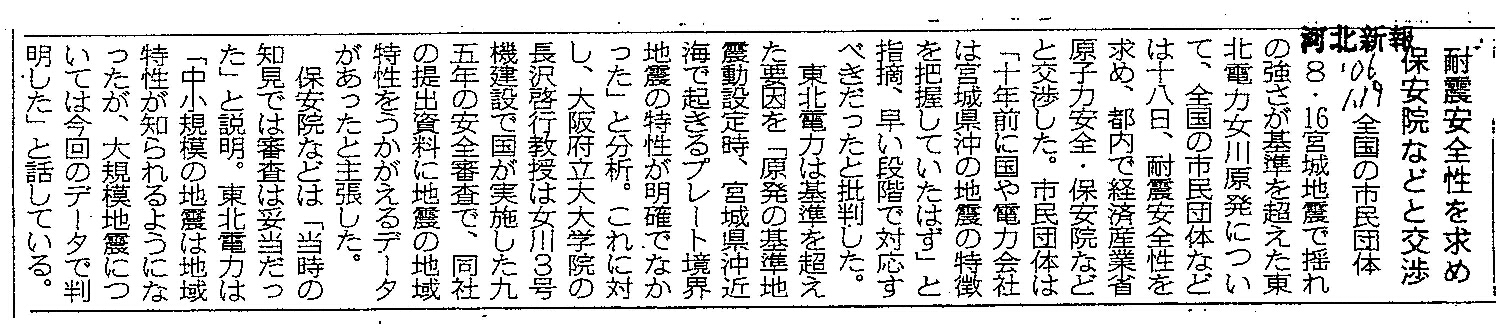 耐震安全性を求め
保安院などと交渉
河北新報
'06
1.19
全国の市民団体
8・16宮城地震で揺れ
の強さが基準を超えた東
北電力女川原発につい
て、全国の市民団体など
は十八日、耐震安全性を
求め、都内で経済産業省
原子力安全・保安院など
と交渉した。市民団体は
「十年前に国や電力会社
は宮城県沖の地震の特徴
を把握していたはず」と
指摘、早い段階で対応す
べきだったと批判した。
東北電力は基準を超え
た要因を「原発の基準地
震動設定時、宮城県沖近
海で起きるプレート境界
地震の特性が明確でなか
った」と分析。これに対
し、大阪府立大大学院の
長沢啓行教授は女川3号
機建設で国が実施した九
五年の安全審査で、同社
の提出資料に地震の地域
特性をうかがえるデータ
があったと主張した。
保安院などは「当時の
知見では審査は妥当だっ
た」と説明。東北電力は
「中小規模の地震は地域
特性が知られるようにな
ったが、大規模地震につ
いては今回のデータで判
明した」と話している。